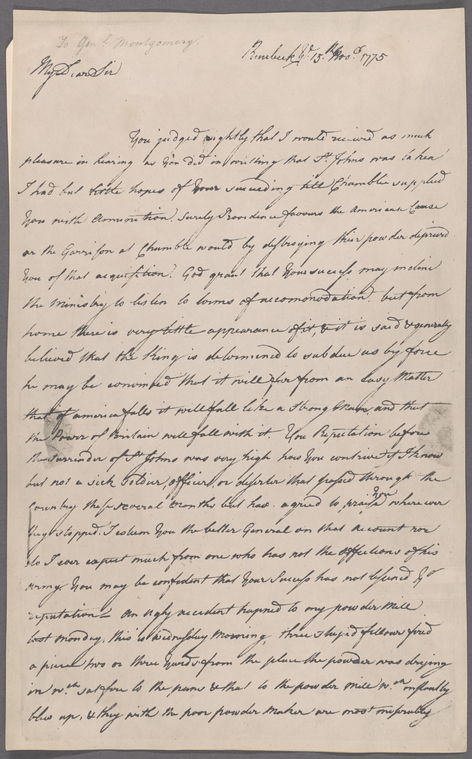 To Genl. Montgomery.
Rinebeck 15th Novr. 1775
My Dear Sir
You judged rightly that I would receive as much
pleasure in hearing as You did in writing that St. Johns was taken
I had but little hopes of Your succeeding till Chamblee supplied
You with Amunition. Surely Providence favours the American Cause
or the Garrison at Chamble would by distroying their powder deprived
You of that acquisition. God grant that Your success may incline
the Ministry to listen to terms of accomonodation, but from
home there is very little appearance of it, & it is said & generaly
believed that the thing is determined to subdue us by force
he may be convinced that it will far from an Easy Matter
that if america falls it will fall like a strong Man and that
the Power of Britain will fall with it. You Reputation before
the surrender of St. Johns was very high how You contrive it I know
but not a sick Soldier, officer, or deserter that passed through the
Country these several Months but has agreed to praise You wherever
they stopped. I esteem You the better General on that Account nor
do I ever expect much from one who has not the affections of his
Army. You may be confident that Your Sucess has not lessened Yr.
reputation — An Ugly accident hapned to my powder Mill
last Monday, this is Wednesday Morning, three stupid fellows fired
a piece two or three Yards from the place the powder was drying
in wch. sat fire to the pans & that to the powder Mill wch. instantly
blew up, & they with the poor powder maker are most miserably